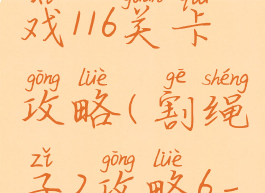 戏116关卡
gōng lüè gē shéng
攻略(割绳
zǐ gōng lüè
子2攻略6-